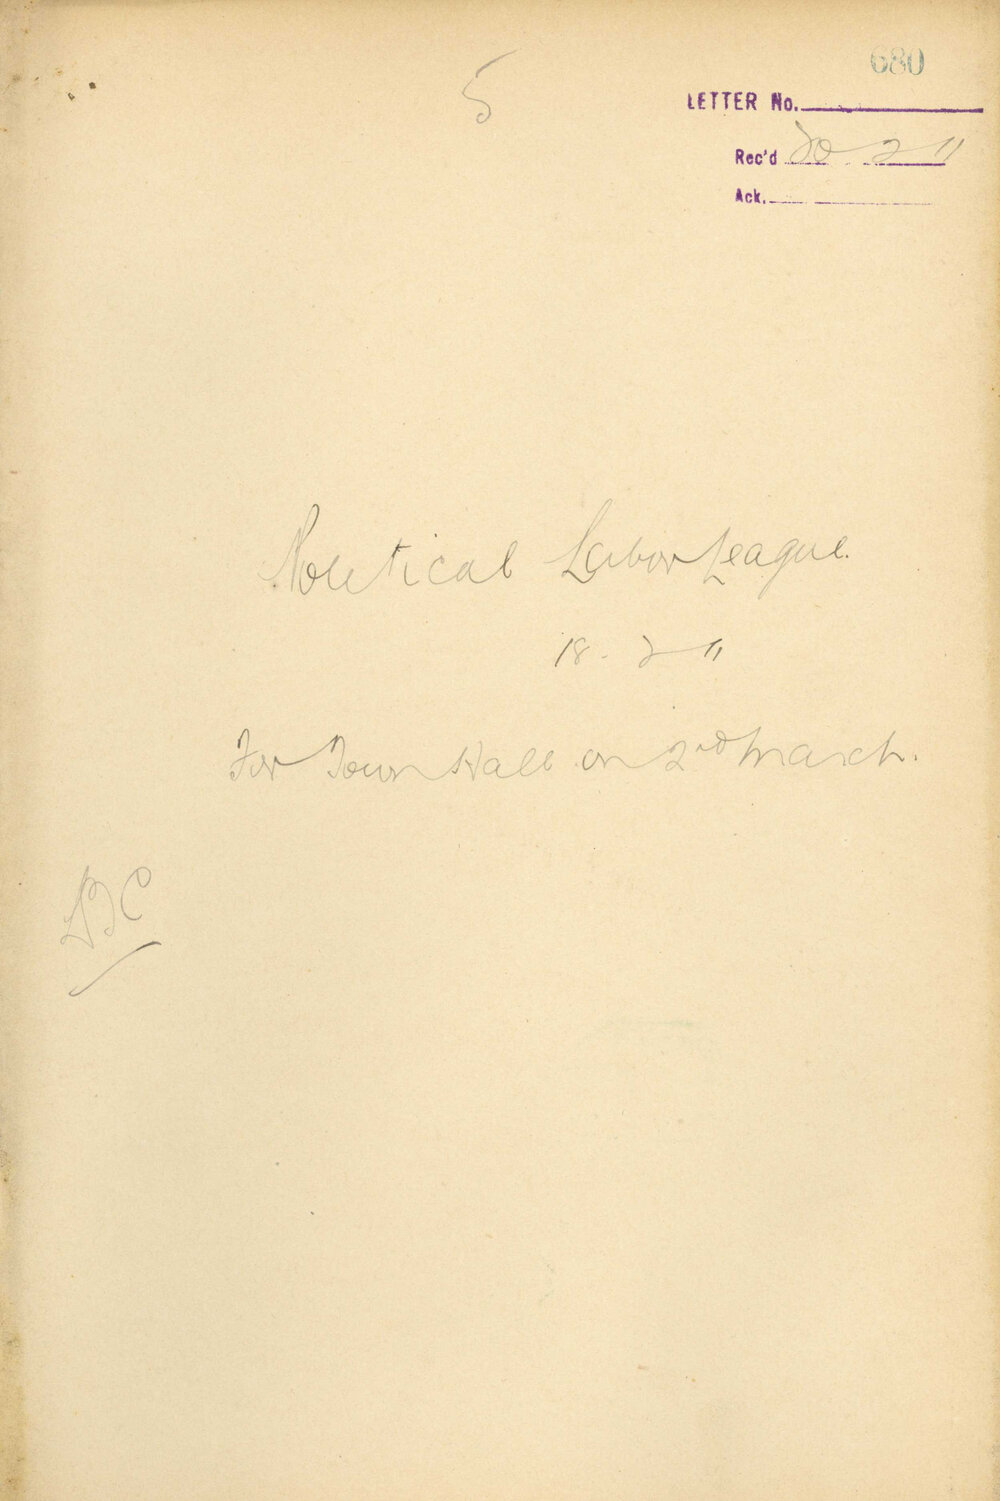 680
5
LETTER No.
Rec'd 20 2 11
Ack.
Political Labor League.
18. 2 11
For Town Hall on 2nd March.